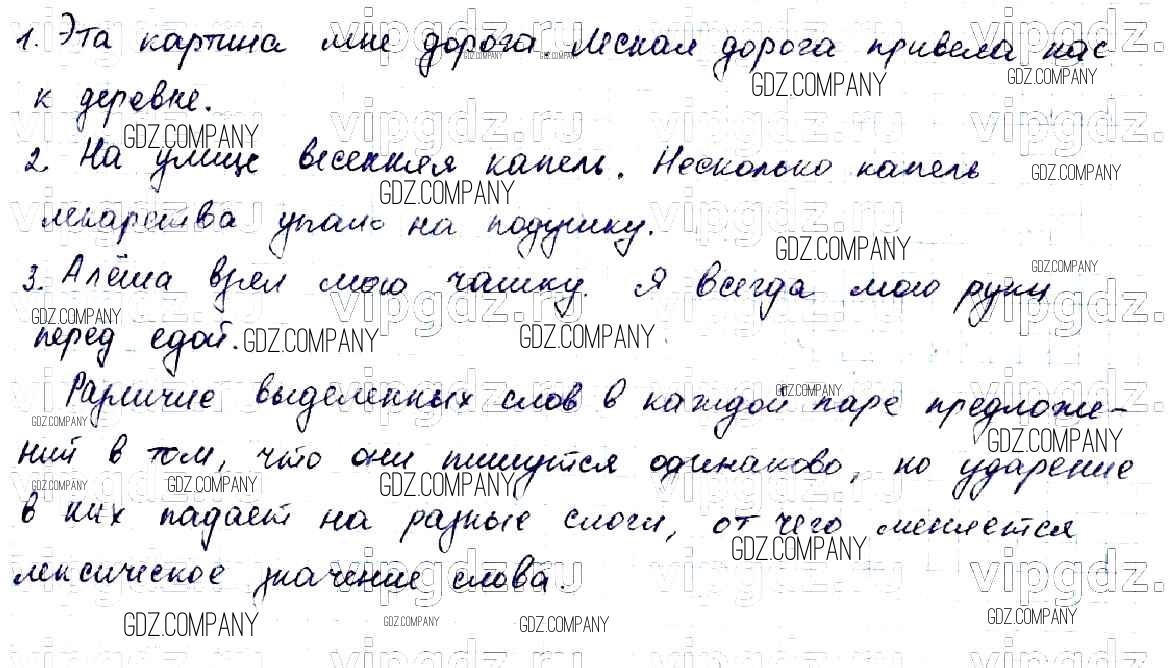 1. Эта картина мне дорога. Лесная дорога привела нас
к деревне.
2. На улице весенняя капель. Несколько капель
лекарства упало на подушку.
3. Алёша взял мою чашку. Я всегда мою руки
перед едой.
Различие выделенных слов в каждой паре предложе-
ний в том, что они пишутся одинаково, но ударение
в них падает на разные слоги, от чего меняется
лексическое значение слова.
vipgdz.ru
GDZ.COMPANY